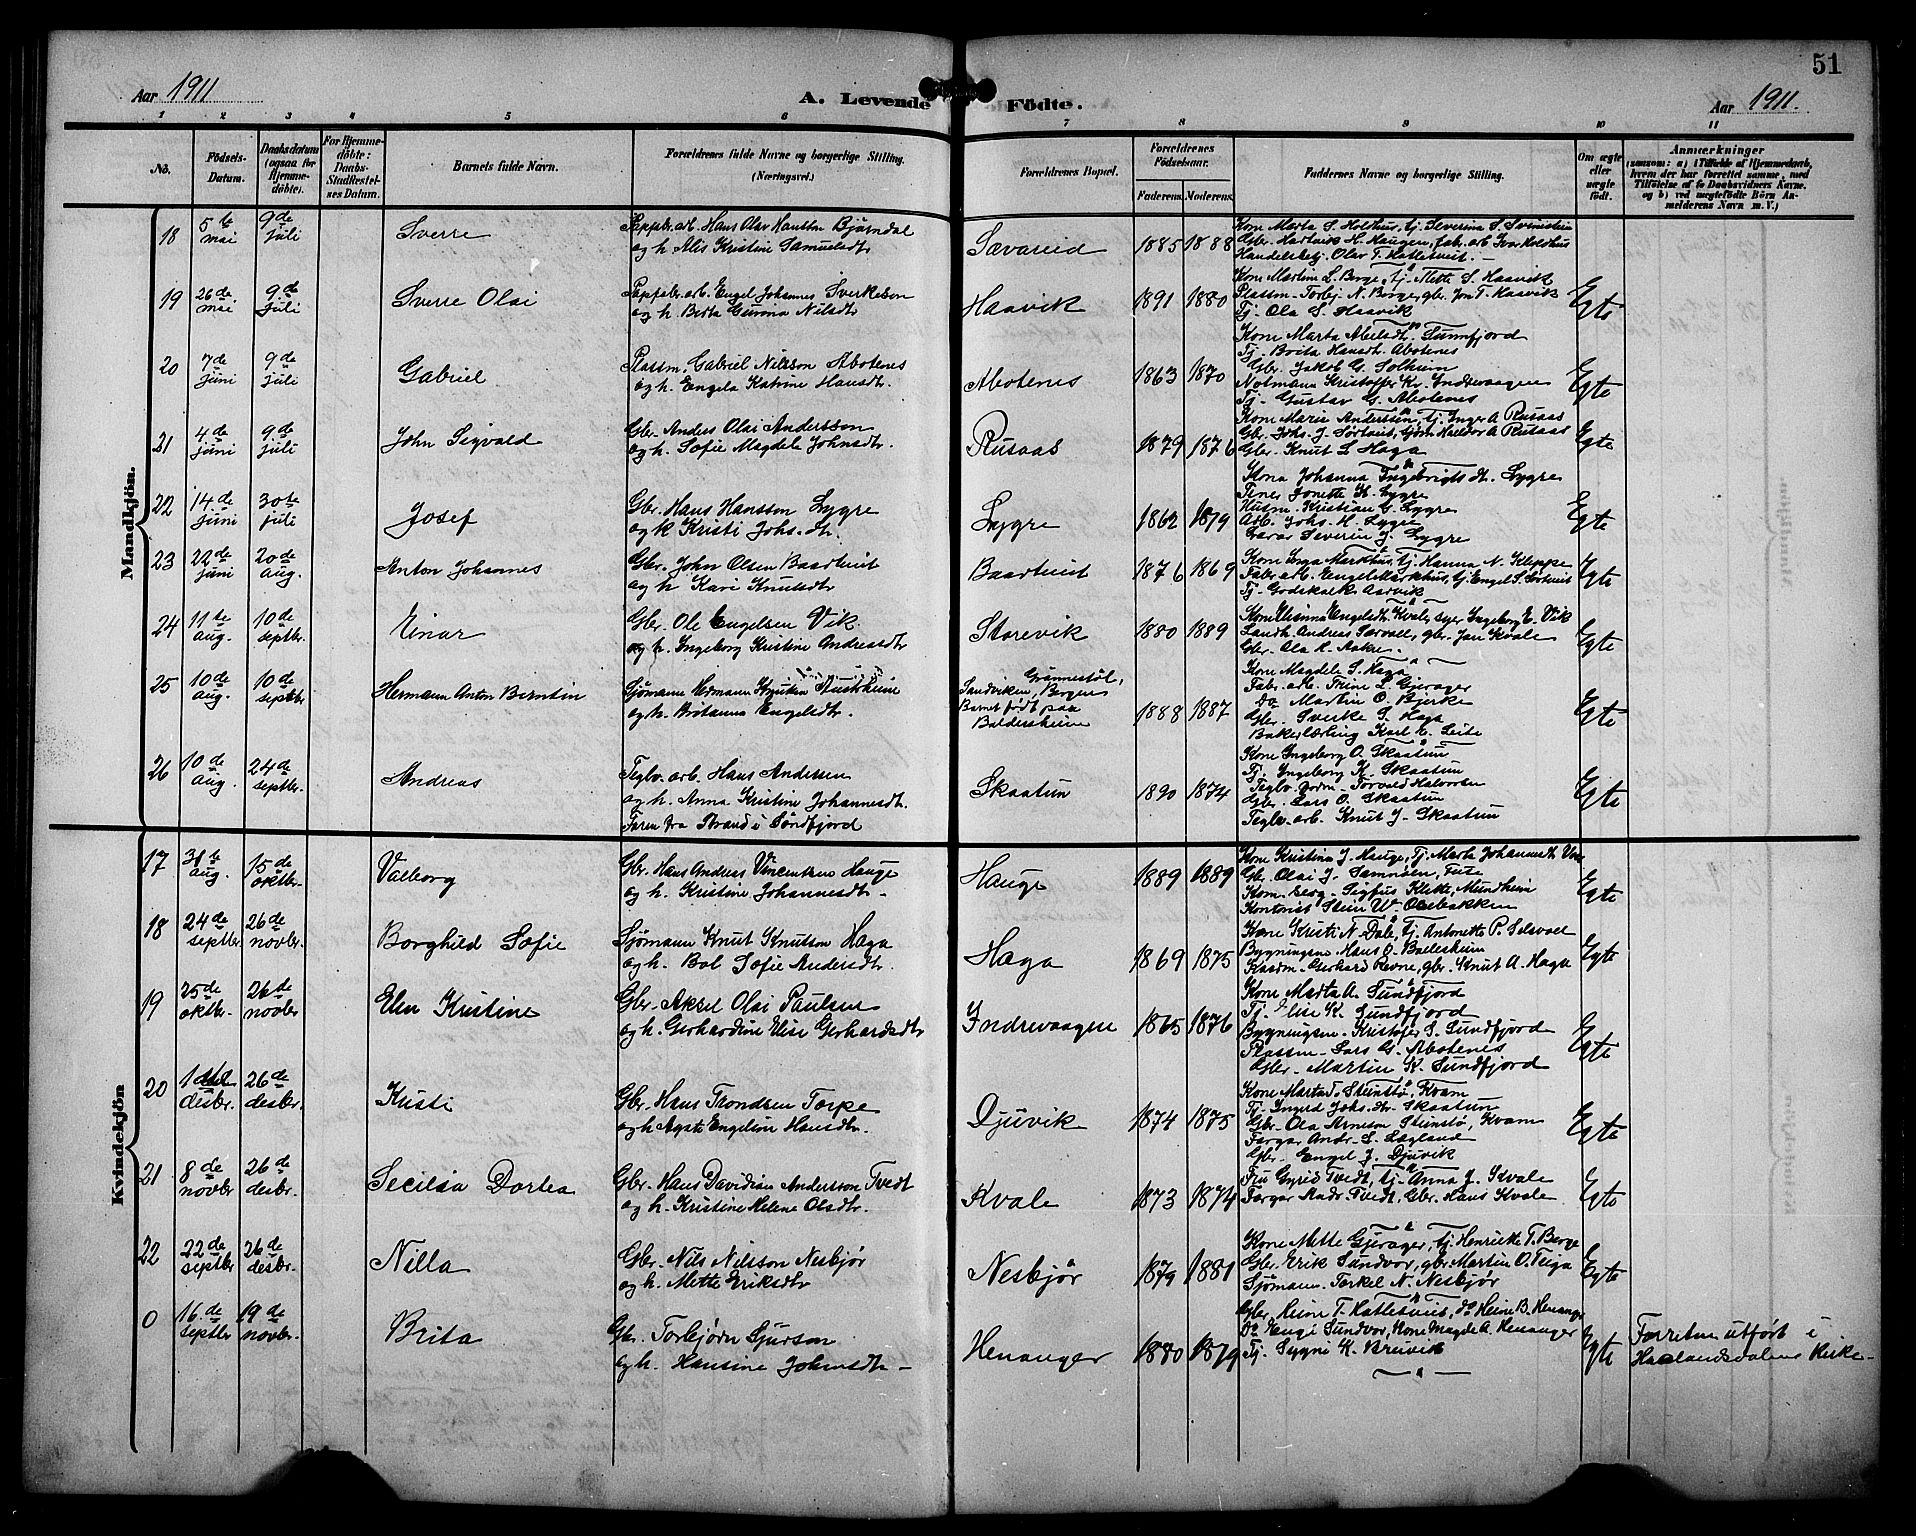 51
Aar 1911
A. Levende Födte.
Aar 1911.
1 2 3 4 5 6 7 8 9 10 11
No.
Födsels-
Datum.
Daabsdatum
(ogsaa for
Hjemme-
döbte).
For Hjemme-
döbte:
Daabs-
Stadfæstel-
nes Datum.
Barnets fulde Navn.
Forældrenes fulde Navne og borgerlige Stilling.
(Næringsvei.)
Forældrenes Bopæl.
Forældrenes
Födselsaar.
Faderens. Moderens.
Faddernes Navne og borgerlige Stilling.
Om ægte
eller
uægte
födt.
Anmærkninger
(saasom: a) i Tilfælde af Hjemmedaab,
hvem der har forrettet samme, med
Tilföielse af to Daabsvidners Navne.
og b) ved uægtefödte Börn An-
melderens Navn m. V.)
Mandkjön.
18 5te mai 9de juli Sverre
Papfabr. arb. Hans Olav Hansson Bjørndal
og h. Alis Kristine Samuelsdtr
Sævareid 1885 1888
Kone Marta S. Holdhus, tj. Severina S.
Gbr. Hartvik H. Haugen, fabr. arb. Ivar Holdhus
Handelsbetj. Olav T. Hatletveit. -
19 26de mai 9de juli Sverre Olai
Papfabr. arb. Engel Johannes Sverkeson
og h. Brita Gurina Nilsdtr
Haavik 1891 1880
Kone Martha L. Berge, tj. Mette S. Haavik
Plassm. Torbj. N. Berge, gbr. Jon T. Haavik
Tj. Ola S. Haavik
Egte
20 7de juni 9de juli Gabriel
Plassm. Gabriel Nilsson Abotenes
og h. Engela Katrine Hansdtr.
Abotenes 1863 1870
Kone Marta Sunnfjord
Tj. Brita Hansdtr. Abotenes
Gbr. Jakob G. Solheim
Notmann Kristoffer Kr. Indrevaagen
Tj. Gustav G. Abotenes
Egte
21 4de juni 9de juli John Sigvald
Gbr. Anders Olai Andersson
og h. Sofie Magdela Johnsdtr.
Rusaas 1879 1876
Kone Marie Andersdtr, tj. Inger A Rusaas
Gbr. Johs. J. Sørtveit, Halldor A Rusaas
Gbr. Knut L Haga
Egte
22 14de juni 30te juli Josef
Gbr. Hans Hansson Lygre
og h Kristi Johs. dt.
Lygre 1862 1879
Kona Johanna Ingebrigts dt. Lygre
Jonette H. Lygre
Husm. Kristian G. Lygre
Arb. Johs. H. Lygre
Severin J. Lygre
Egte
23 22de juni 20de aug. Anton Johannes
Gbr. John Olsen Baartveit
og h. Kari Knutsdtr
Baartveit 1876 1869
Kone Inga Markhus, tj. Hanna N. Kleppe
Fabr. arb. Engel Markhus, tj. Engel S. Sørtveit
Tj. Godskalk Aarvik
Egte
24 11te aug. 10de septbr. Einar
Gbr. Ole Engelsen Vik
og h. Ingeborg Kristine Andreasdtr
Storevik 1880 1889
Kone Engelsdtr Kvale, Ingeborg E. Vik
Landh. Andreas Sævoll, gbr. Jan Kvale
Gbr. Ola K. Aakre.
Egte
25 10de aug. 10de septbr Hermann Anton Berntin
Sjømann Hermann Knutsen Austrheim
og h. Britanna Engelsdtr.
Grønnestøl,
Sandviken, Bergen
Barnet født paa
Baldersheim
1888 1887
Kone Magdela S. Haga
Fabr. arb. Trine L. Gjerager
Do Martin O. Bjerke
Gbr. Sverke S. Haga
Bakerlærling Karl E. Leite
Egte
26 10de aug. 24de septbr. Andreas
Teglv. arb. Hans Andersen
og h. Anna Kristine Johannesdtr.
Faren fra Strand i Søndfjord
Skaatun 1890 1874
Kone Ingeborg O. Skaatun
Tj. Ingeborg K. Skaatun
Teglv. Torvald Halvorsen
Gbr. Lars O. Skaatun
Teglv. arb. Knut J. Skaatun
Egte
Kvindekjön
17 31te aug. 15de oktbr. Valborg
Gbr. Hans Andreas Vincentsen Hauge
og h. Kristine Johannesdtr.
Hauge 1889 1889
Kone Kristina J. Hauge, Tj. Marta
Gbr. Olai J. Samnøen, Fuse
Sigfus Klette, Mundheim
Kontorist Stein W. Olsbakken
Egte
18 24de septbr 26de novbr. Borghild Sofie
Sjømann Knut Knutson Haga
og h. Bol Sofie Andersdtr.
Haga 1869 1875
Kone Kristi N. Dale, tj. Antonette P. Selsvoll
Bygningssn. Hans O. Balleshem
Gerhard Revne, gbr. Knut A. Haga
Egte
19 25de oktbr. 26te novbr Elen Kristine
Gbr. Aksel Olai Paulsen
og h. Gerhardine Elise Gerhardsdtr
Indrevaagen 1865 1876
Kone Marta A. Sundfjord
Tj. Elise K. Sundfjord
Bygningssn. Kristofer S. Sundfjord
Plassm. Lars G. Abotenes
Gbr. Martin K. Sundfjord
Egte
20 1 desbr. 26de desbr. Kristi
Gbr. Hans Trondsen Torpe
og h Agate Engeline Hansdtr.
Djuvik 1874 1875
Kone Marta Steinstø, Kvam
Tj. Ingerd Johs. dtr. Skaatun
Gbr. Ola Arneson Steinstø, Kvam
Farger Andr. S. Legland
Gbr. Engel J. Djuvik
Egte
21 8de novbr 26de desbr. Secilia Dortea
Gbr. Hans Davidson Andersson Tvedt
og h. Kristine Helene Olsdtr.
Kvale 1873 1874
Fru Gyrid Tvedt, tj. Anna J. Kvale
Farger Andr. Tvedt, Gbr. Hans Kvale
Egte
22 22de septbr 26de desbr. Nilla
Gbr. Nils Nilsson Nesbjør
og h. Mette Eriksdtr
Nesbjør 1879 1881
Kone Mette Gjerager, tj. Henrikke T. Berge
Gbr. Erik Sundvor, gbr. Martin O. Teiga
Sjømann Torkel N. Nesbjør
Egte
0 16.de septbr 19de novbr. Brita
Gbr. Torbjørn Sjurson
og h. Hansine Johnsdtr -
Henanger 1880 1879
Gbr. Heine T. Hatletveit, do Heine B. Henanger
Do Engel Sundvor, Kone Magda A. Henanger
Tj. Sygni K. Breivik
Egte
Forretn. utført i
Haalandsdalens Kirke -